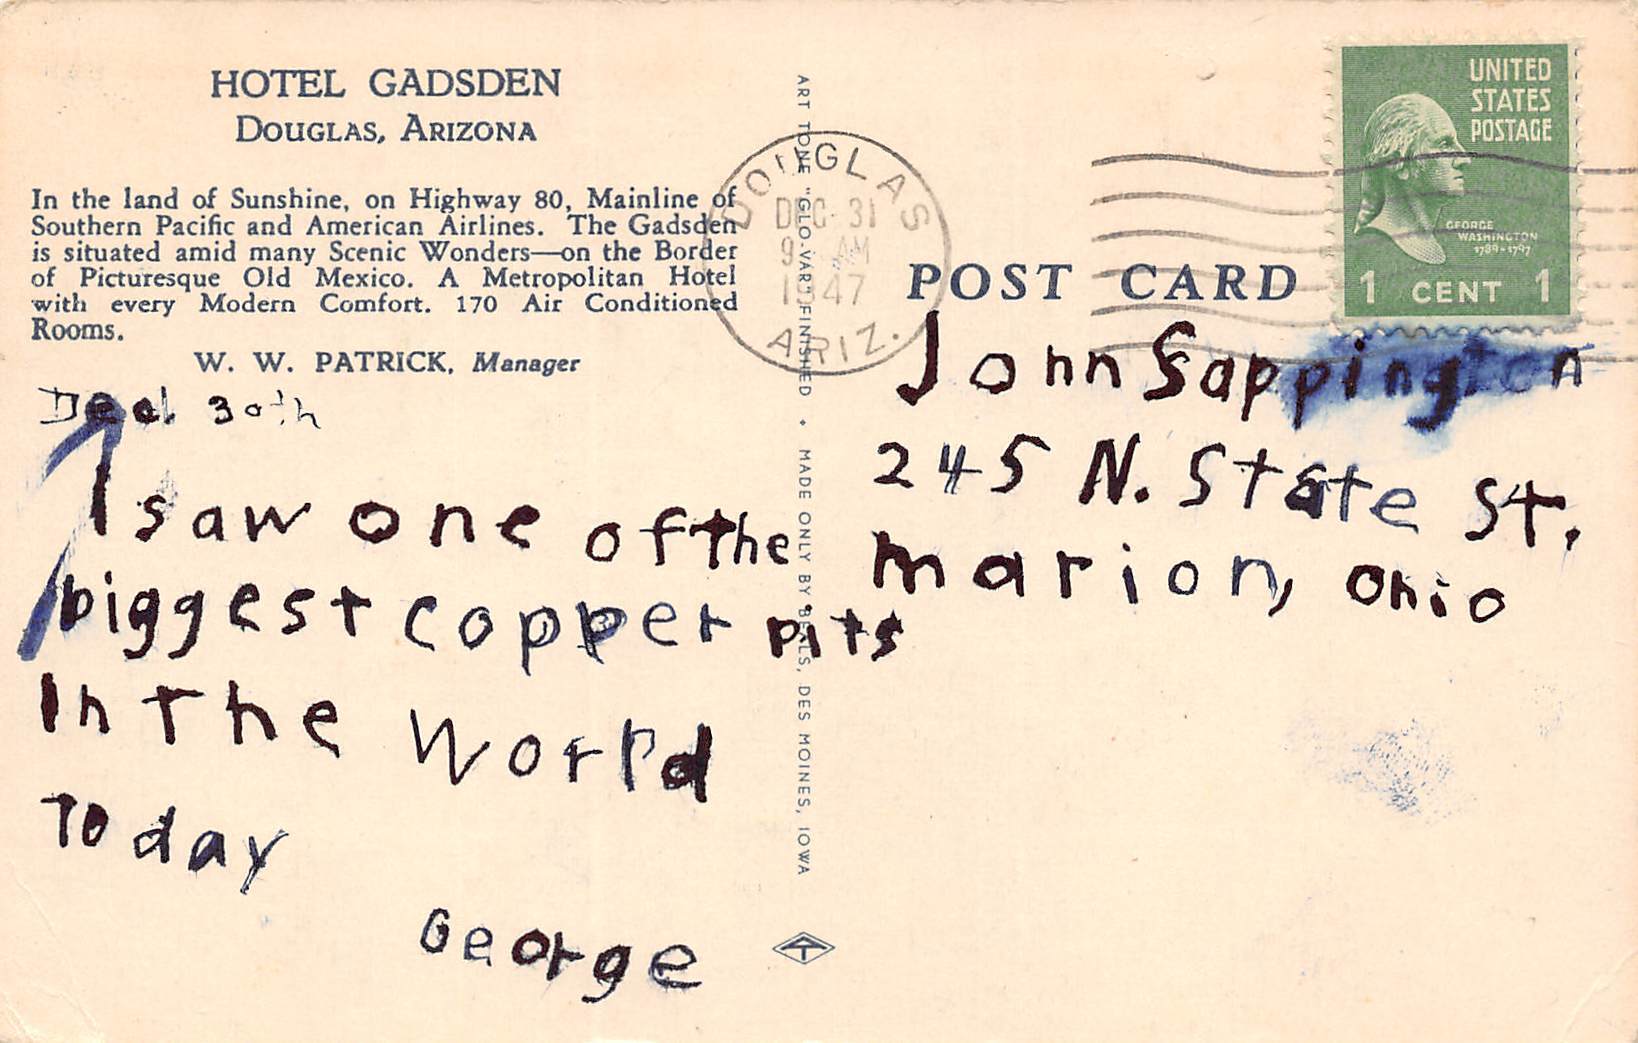 HOTEL GADSDEN
DOUGLAS, ARIZONA
In the land of Sunshine, on Highway 80, Mainline of
Southern Pacific and American Airlines. The Gadsden
is situated amid many Scenic Wonders—on the Border
of Picturesque Old Mexico. A Metropolitan Hotel
with every Modern Comfort. 170 Air Conditioned
Rooms.
W. W. PATRICK, Manager
30th
I saw one of the
biggest copper pits
In the World
Today
George
ART TONE "GLO-VAR" FINISHED • MADE ONLY BY BEALS, DES MOINES, IOWA
DOUGLAS
DEC 31
9 AM
1947
ARIZ.
POST CARD
UNITED
STATES
POSTAGE
GEORGE
WASHINGTON
1789-1797
1 CENT 1
John Sappington
245 N. State St.
Marion, Ohio